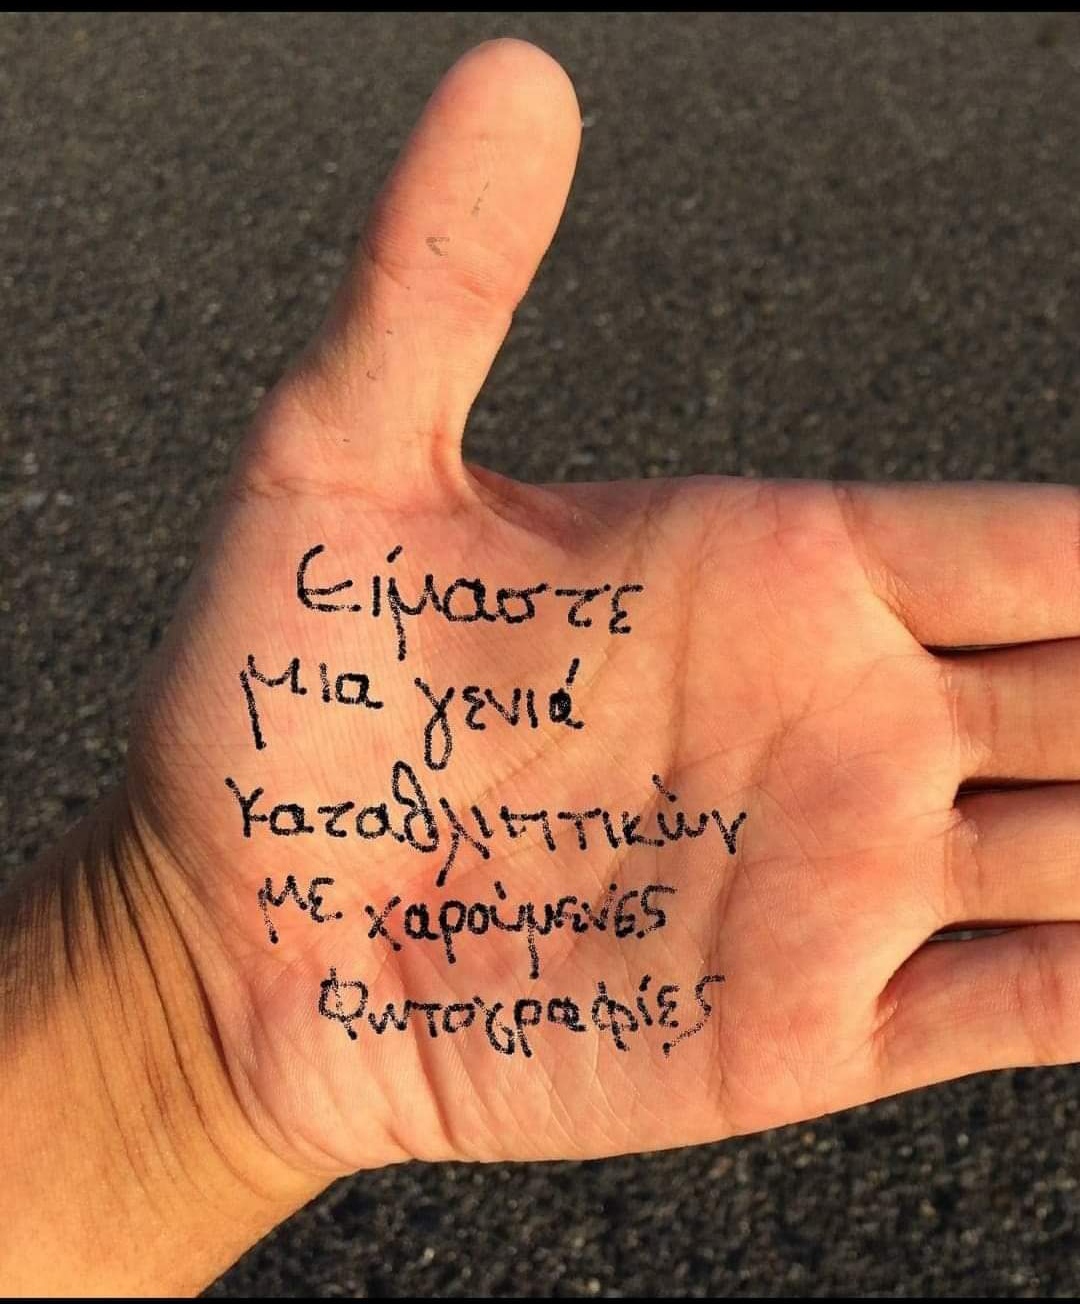 Είμαστε
μια γενιά
καταθλιπτικών
με χαρούμενες
φωτογραφίες